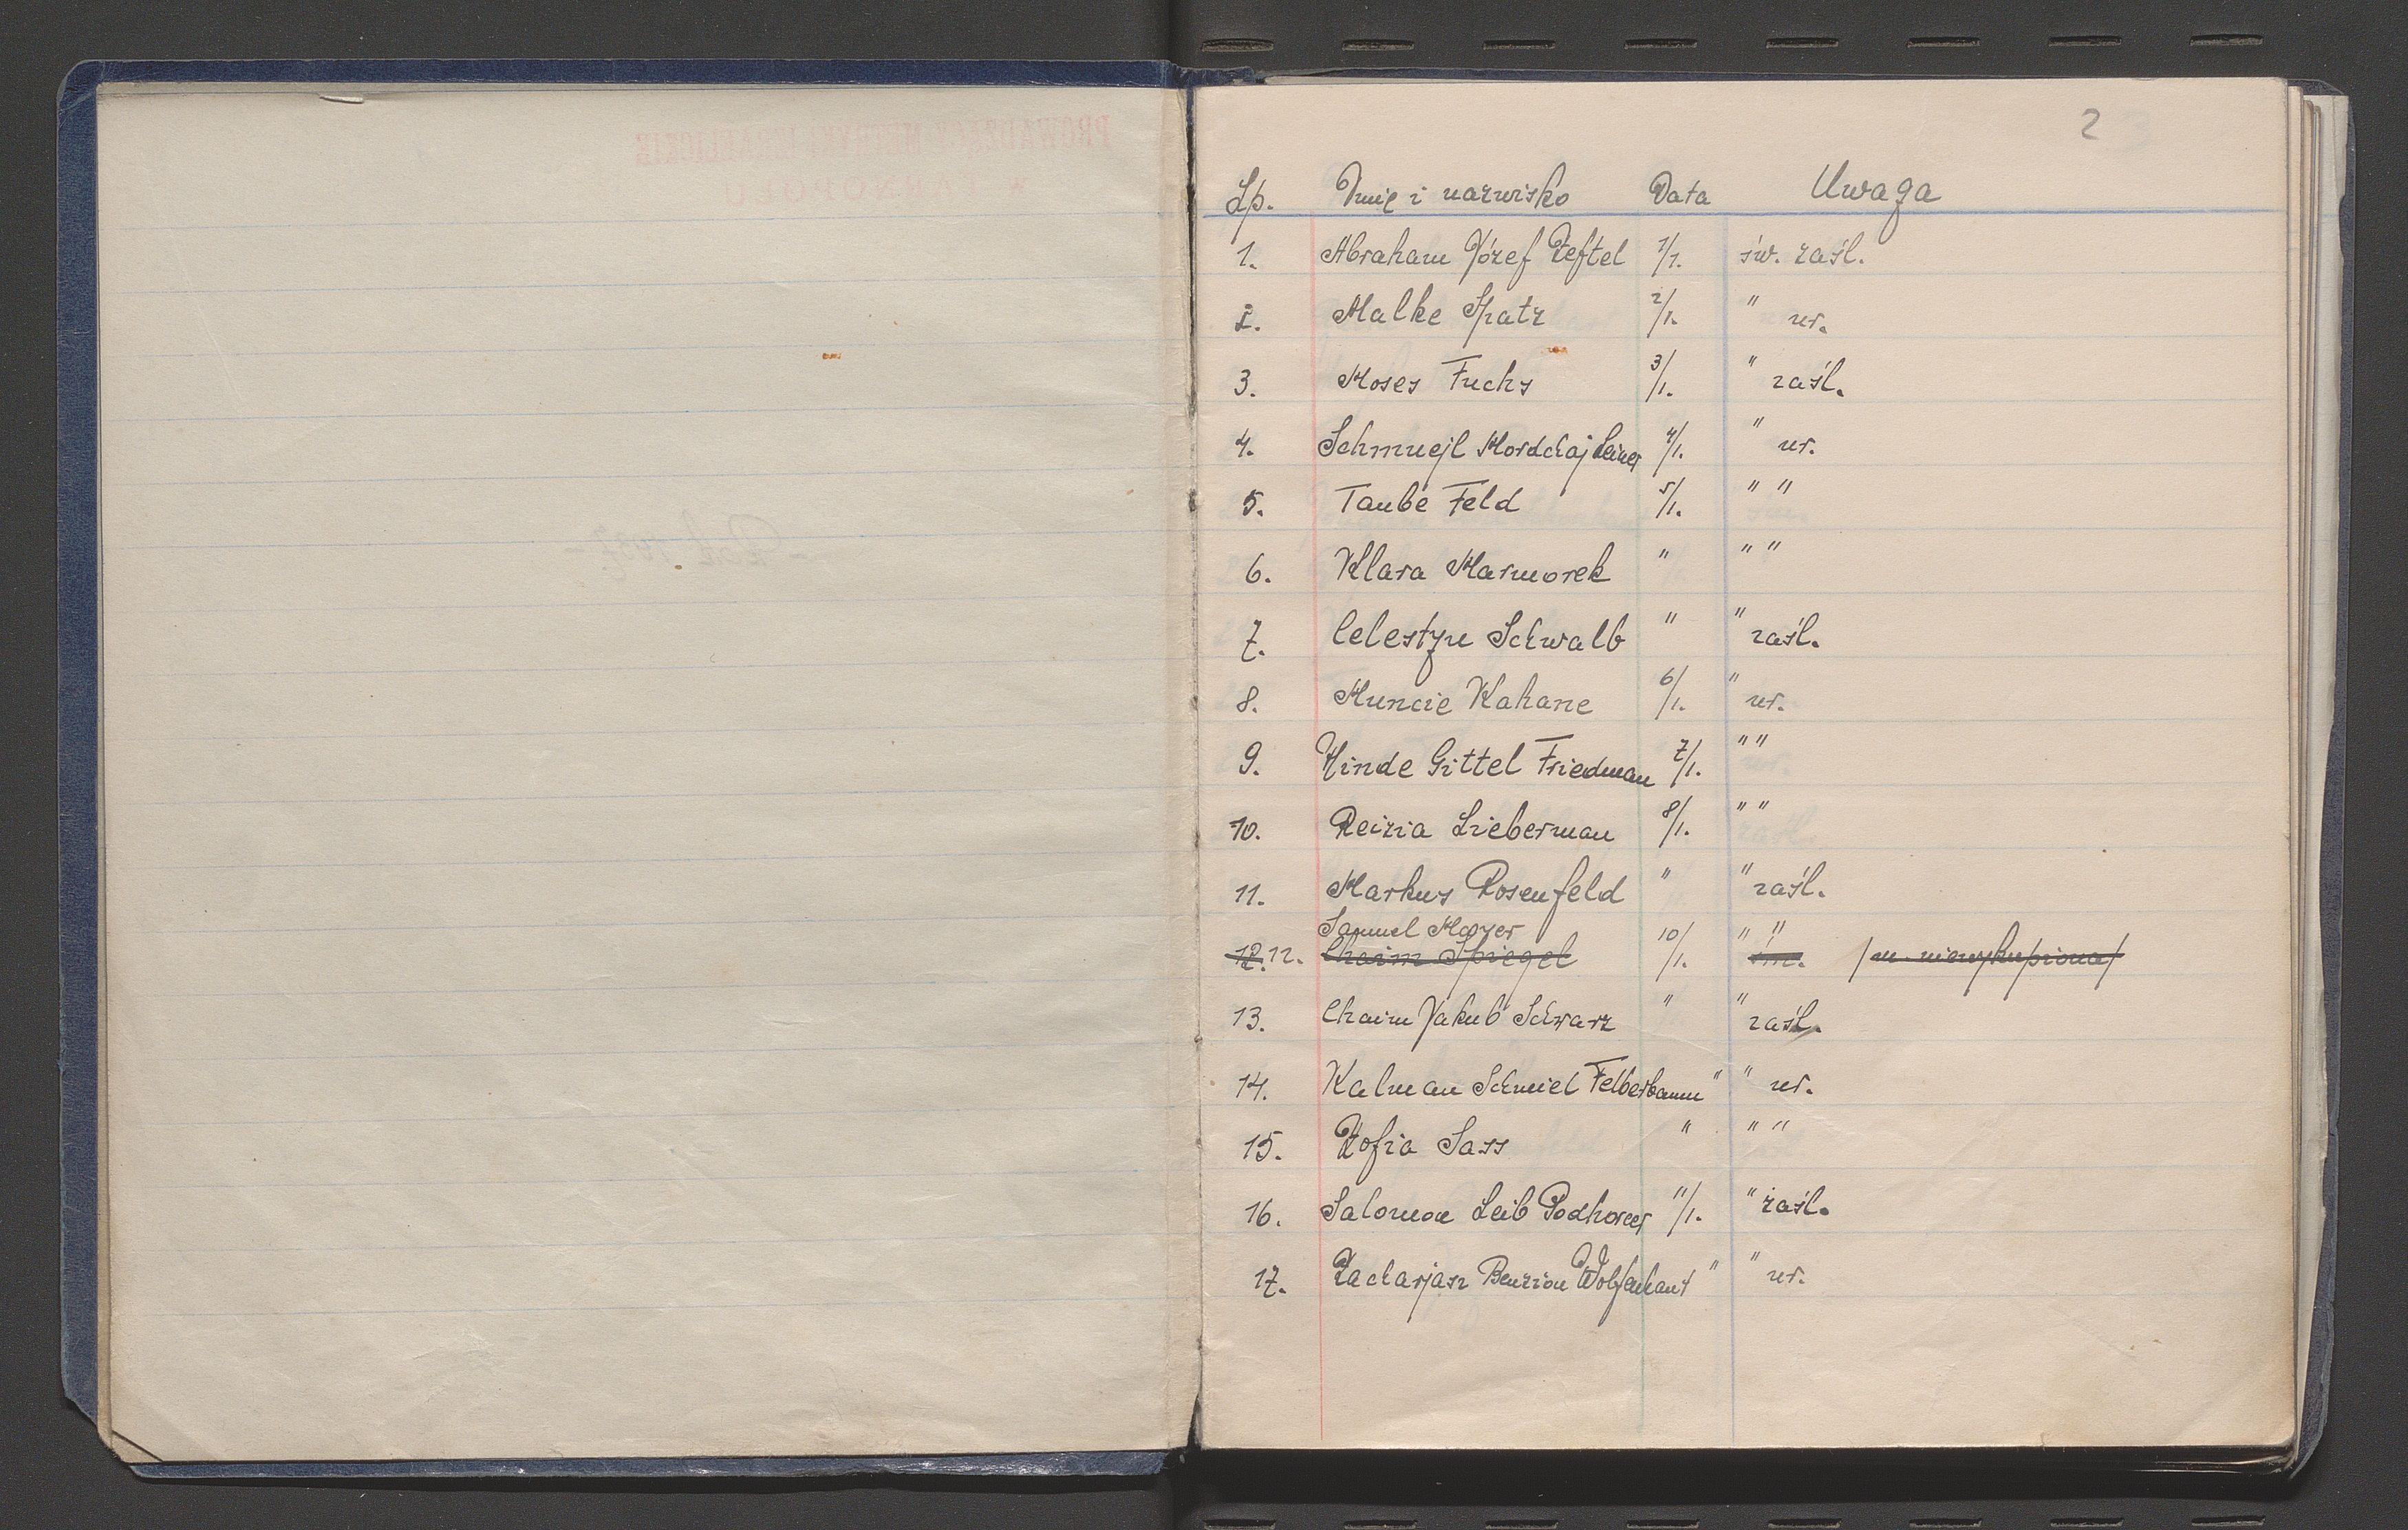 PROWADZĄCY METRYKI IZRAELICKIE
W TARNOPOLU
2
Lp. Imię i nazwisko Data Uwaga
1. Abraham Józef Zeftel 1/1. św. zaśl.
2. Malke Spatz 2/1. " ur.
3. Moses Fuchs 3/1. " zaśl.
4. Schmuejl Mordchaj Leiner 4/1. " ur.
5. Taube Feld 5/1. " "
6. Klara Marmorek " " "
7. Celestyn Schwalb " " zaśl.
8. Muncie Kahane 6/1. " ur.
9. Hinde Gittel Friedman 7/1. " "
10. Reizia Lieberman 8/1. " "
11. Markus Rosenfeld " " zaśl.
Samuel Mayer 10/1. " "
12. 12. Chaim Spiegel śm. /m. niewykupiona/
13. Chaim Jakub Schwarz " " zaśl.
14. Kalman Schmiel Felberbaum " " ur.
15. Zofia Sass " " "
16. Salomon Leib Podhorcer 11/1. " zaśl.
17. Zacharjasz Benzion Wolfenhaut " " ur.